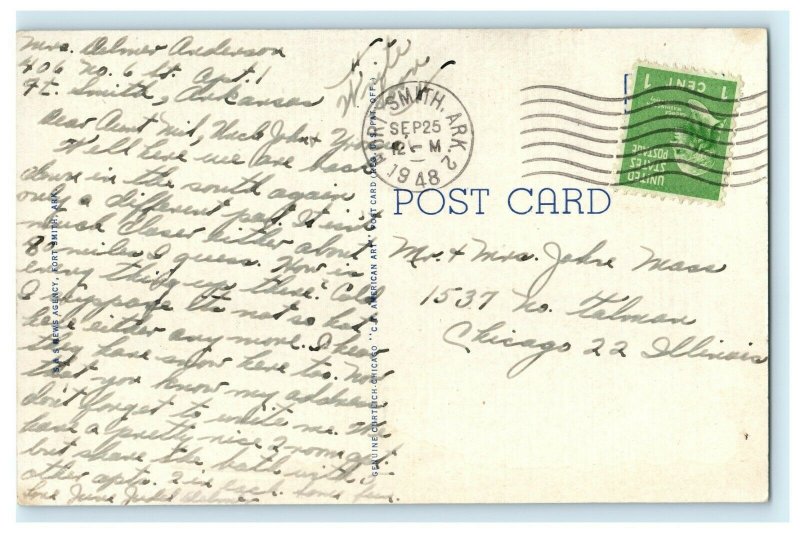 Mrs. Delmer Anderson
406 No. 6 St. Apt. 1
Ft. Smith, Arkansas
Dear Aunt Mil, Uncle John &
Well here we are back
down in the south again
only a different part. It isn't
much closer either about
80 miles I guess. How is
every thing up there? Cold
I suppose. It's not so hot
here either any more. I hear
they have snow here too. Now
that you know my address
don't forget to write me. We
have a pretty nice 2 room apt.
but share the bath with
other apts. 2 in each. some fun.
Love June Judel Delmer
Write
soon
FORT SMITH, ARK. 2
SEP 25
12 M
1948
1 CENT 1
UNITED
STATES
POSTAGE
POST CARD
Mr. & Mrs. John Mass
1537 No. Talman
Chicago 22 Illinois
S. & S. NEWS AGENCY, FORT SMITH, ARK.
GENUINE CURTEICH-CHICAGO "C.T. AMERICAN ART" POST CARD (REG. U.S. PAT. OFF.)